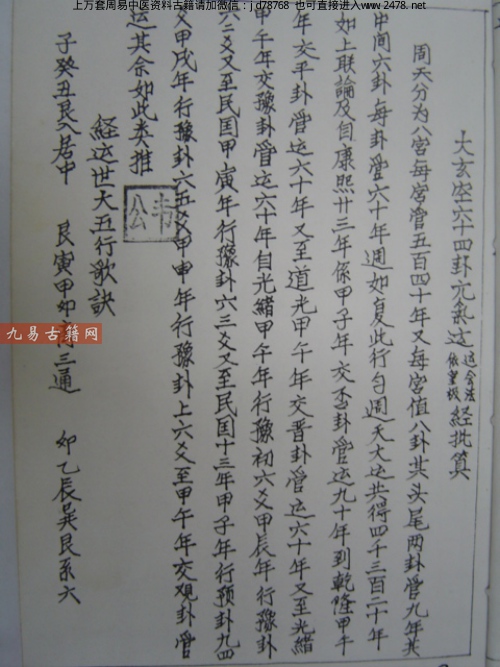 上万套周易中医资料古籍请加微信:jd78768 也可直接进入www.2478.net
大玄空六十四卦元气运運會法依皇极經批算
周天分为八宮每宮管五百四十年又每宮值八卦其头尾两卦管九年其
中间六卦每卦管六十年週如复此行勻週天大运共得四千三百二十年
如上联論及自康熙卅三年係甲子年交否卦管运九十年到乾隆甲午
年交平卦管运六十年又至道光甲午年交晋卦管运六十年又至光緒
甲午年交豫卦管运六十年自光緒甲午年行豫初六爻甲辰年行豫卦
六二爻又至民国甲寅年行豫卦六三爻又至民国十三年甲子年行预卦九四
爻甲戌年行豫卦六五爻甲申年行豫卦上六爻至甲午年交观卦管
运其余如此类推
經运世大五行歌訣
子癸丑艮入居中 艮寅甲卯 三通 卯乙辰巽艮系六
韦公
九易古籍网